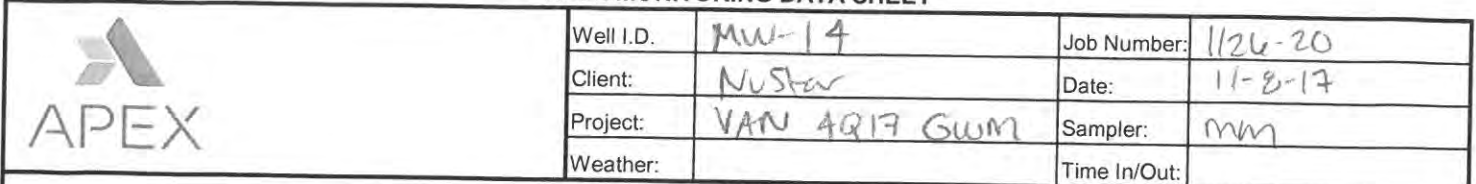 MONITORING DATA SHEET
APEX
Well I.D. MW-14 Job Number: 1126-20
Client: NuStar Date: 11-8-17
Project: VAN 4Q17 GWM Sampler: MM
Weather: Time In/Out: